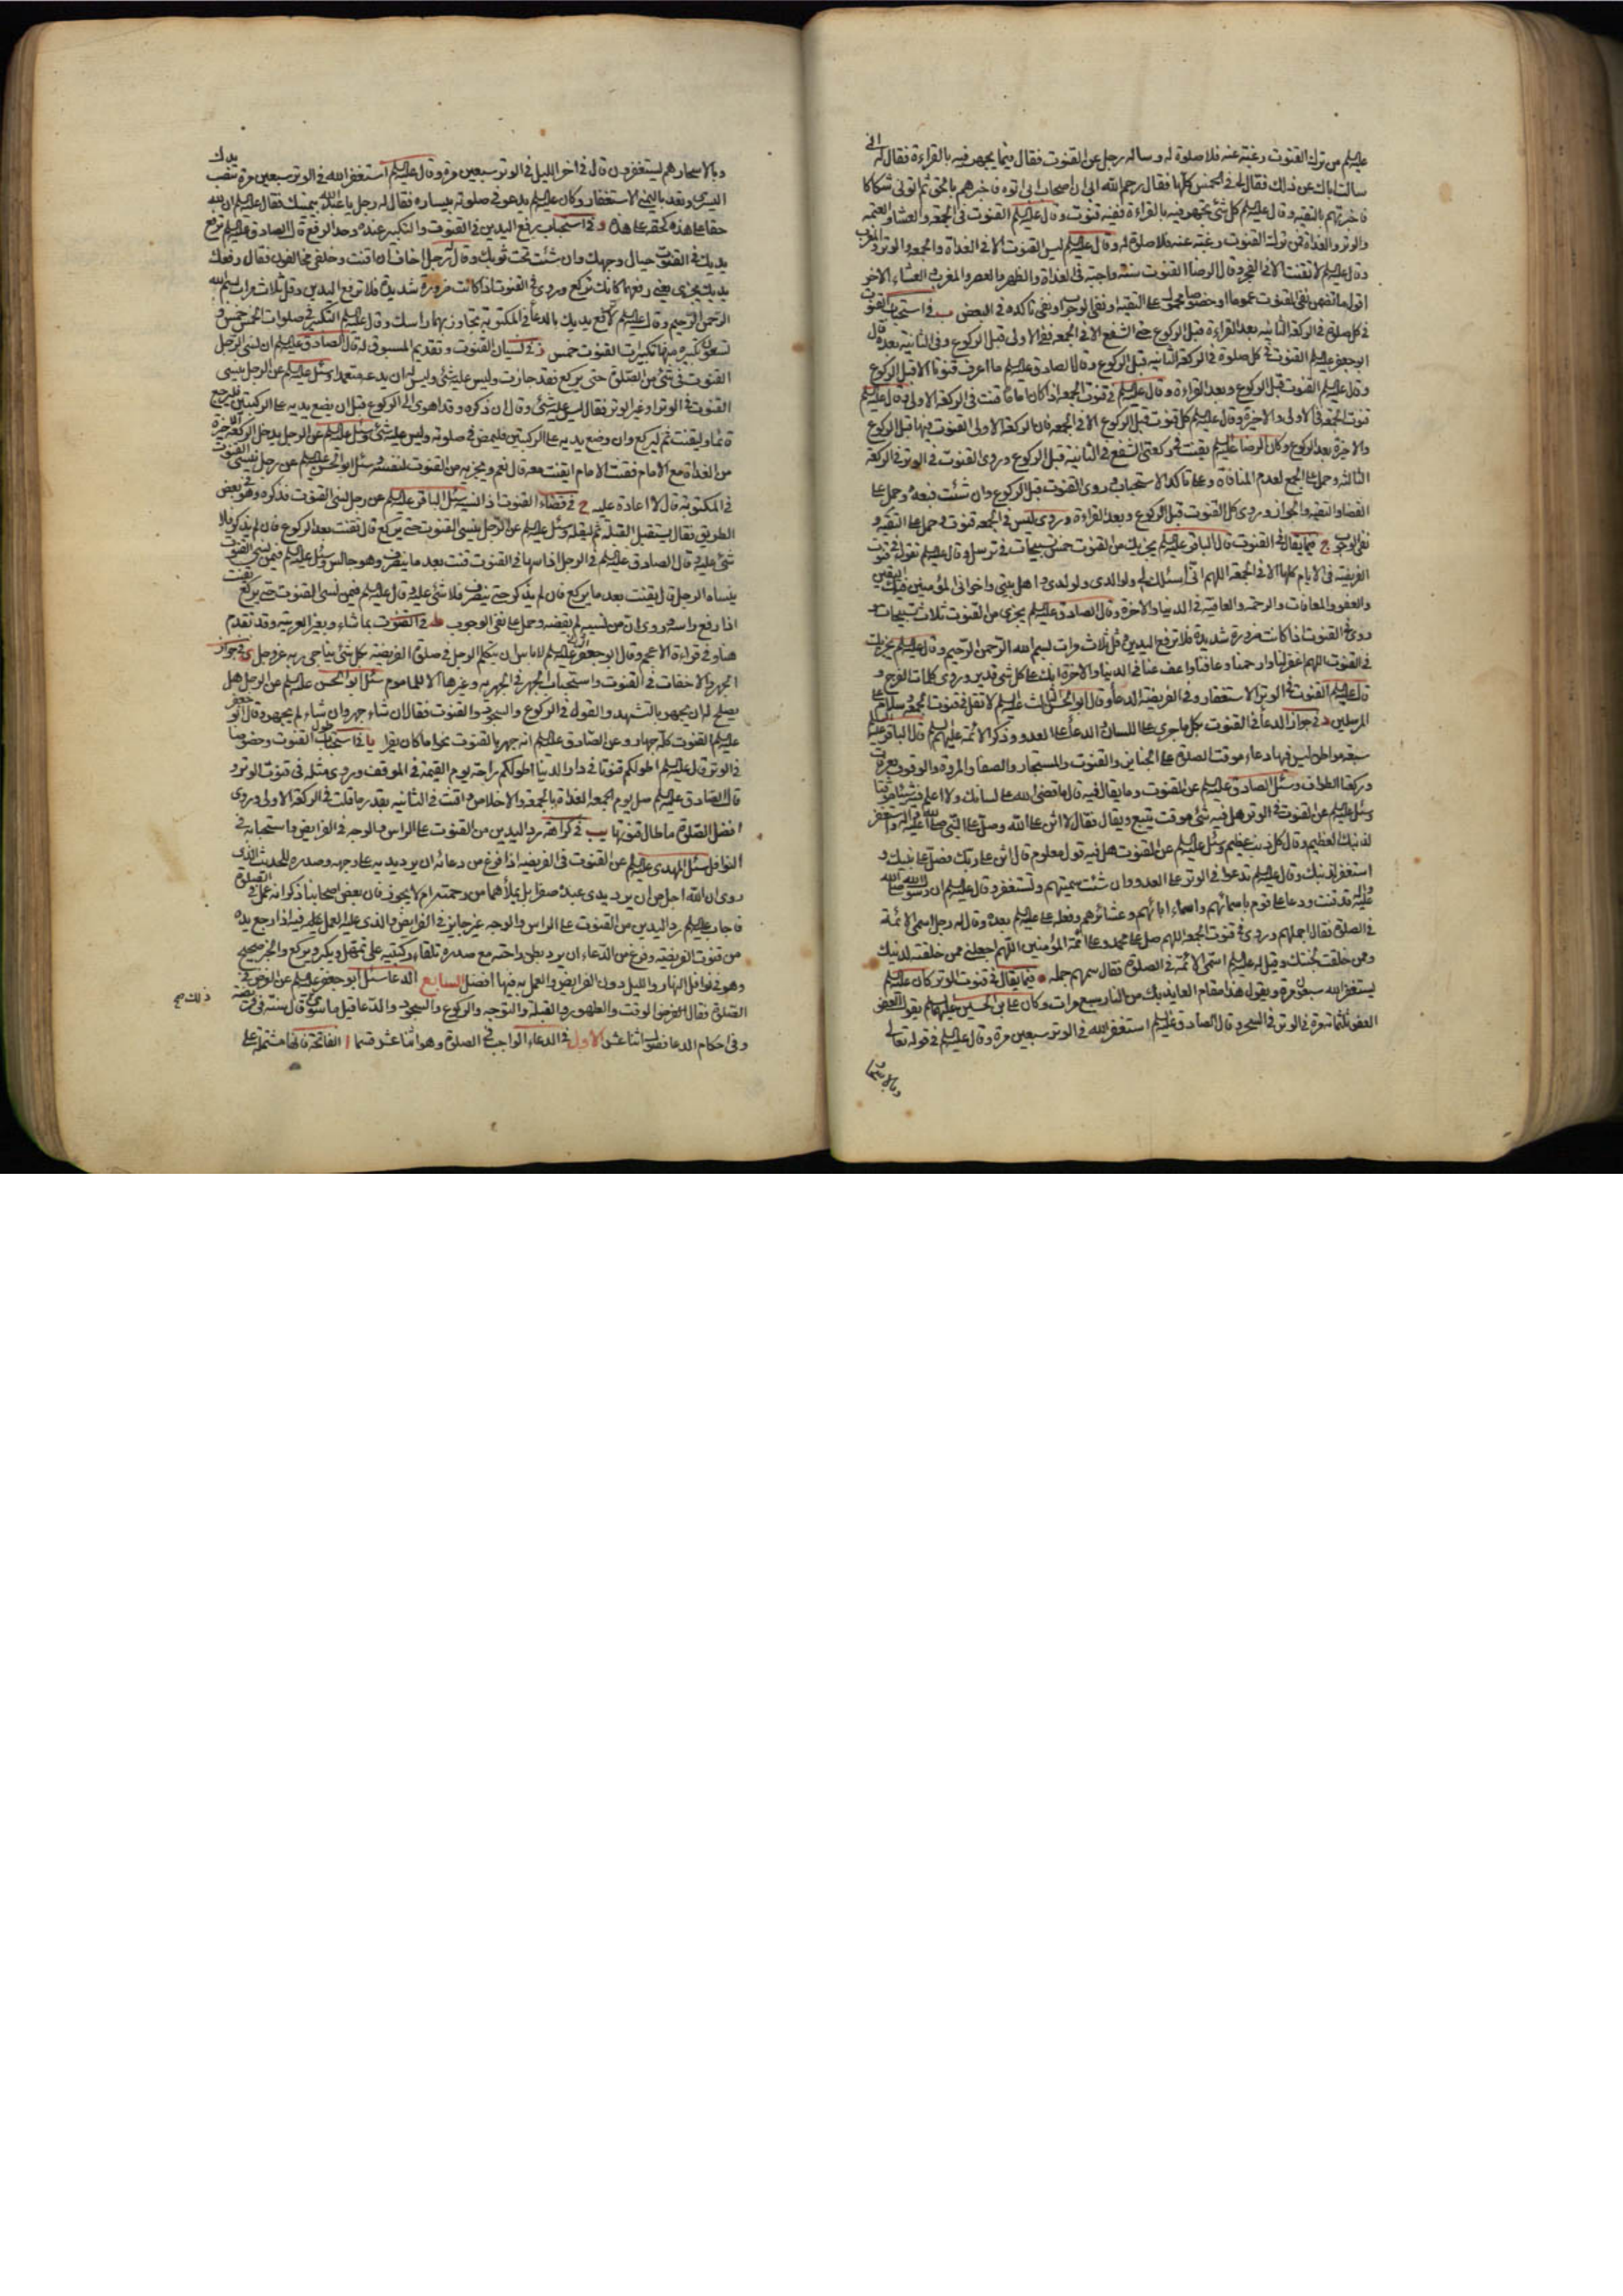 عليه السلم من ترك القنوت رغبة عنه فلا صلوة له وساله رجل عن القنوت فقال فيما يجهر فيه بالقراءة فقال له اني
سالت اباك عن ذلك فقال لي في الخمس كلها فقال رحم الله ابي ان اصحاب ابي اتوه فاخبرهم بالحق ثم اتوني شكاكا
فاخبرتهم بالتقية وقال عليه السلم كل شئ يجهر فيه بالقراءة ففيه قنوت وقال عليه السلم القنوت في الجمعة والعشا والعتمة
والوتر والغداة فمن ترك القنوت رغبة عنه فلا صلوة له وقال عليه السلم ليس القنوت الا في الغداة والجمعة والوتر والمغرب
وقال عليه السلم لا تقنت الا في الفجر وقال الرضا القنوت سنة واجبة في الغداة والظهر والعصر والمغرب والعشاء الاخر
اقول ما تضمن نفي القنوت عموما او خصوصا محمول على التقية او نفي الوجوب او نفي تاكده في البعض ب في استحباب القنوت
في كل صلوة في الركعة الثانية بعد القراءة قبل الركوع حتى الشفع الا في الجمعة ففي الاولى قبل الركوع وفي الثانية بعده قال
ابو جعفر عليه السلم القنوت في كل صلوة في الركعة الثانية قبل الركوع وقال الصادق عليه السلم ما اعرف قنوتا الا قبل الركوع
وقال عليه السلم القنوت قبل الركوع وبعد القراءة وقال عليه السلم في قنوت الجمعة اذا كان اماما قنت في الركعة الاولى وقال عليه السلم
قنوت الجمعة في الاولى والاخيرة وقال عليه السلم كل قنوت قبل الركوع الا في الجمعة فان الركعة الاولى القنوت فيها قبل الركوع
والاخيرة بعد الركوع وكان الرضا عليه السلم يقنت في ركعتي الشفع في الثانية قبل الركوع وروي القنوت في الوتر في الركعة
الثالثة وحمل على الجمع لعدم المنافاة وعلى تاكد الاستحباب وروي القنوت قبل الركوع وان شئت فبعده وحمل على
القضا والتقية والجواز وروي كل القنوت قبل الركوع وبعد القراءة وروي ليس في الجمعة قنوت وحمل على التقية و
نفي الوجوب ج فيما يقال في القنوت قال الباقر عليه السلم يجزيك من القنوت خمس تسبيحات في ترسل وقال عليه السلم تقول في قنوت
الفريضة في الايام كلها الا في الجمعة اللهم اني اسئلك لي ولوالدي ولولدي واهل بيتي واخواني المؤمنين فيك اليقين
والعفو والمعافات والرحمة والعافية في الدنيا والاخرة وقال الصادق عليه السلم يجزي من القنوت ثلاث تسبيحات
وروي في القنوت اذا كانت ضرورة شديدة فلا ترفع اليدين وقل ثلاث مرات بسم الله الرحمن الرحيم وقال عليه السلم يجزيك
في القنوت اللهم اغفر لنا وارحمنا وعافنا واعف عنا في الدنيا والاخرة انك على كل شئ قدير وروي كلمات الفرج و
قال عليه السلم القنوت في الوتر الاستغفار وفي الفريضة الدعاء وقال ابو الحسن الثالث عليه السلم لا تقل في قنوت الجمعة وسلام على
المرسلين د في جواز الدعا في القنوت بكل ما جرى على اللسان والدعاء على العدو وذكر الائمة عليهم السلم قال الباقر عليه السلم
سبعة مواطن ليس فيها دعاء موقت الصلوة على الجنايز والقنوت والمستجار والصفا والمروة والوقوف بعرفات
وركعتا الطواف وسئل الصادق عليه السلم عن القنوت وما يقال فيه قال ما قضى الله على لسانك ولا اعلم فيه شيئا موقتا
وسئل عليه السلم عن القنوت في الوتر هل فيه شئ موقت يتبع ويقال فقال لا اثن على الله وصل على النبي صلى الله عليه واله واستغفر
لذنبك العظيم وقال كل ذنب عظيم وسئل عليه السلم عن القنوت هل فيه قول معلوم قال اثن على ربك وصل على نبيك و
استغفر لذنبك وقال عليه السلم تدعوا في الوتر على العدو وان شئت سميتهم وتستغفر وقال عليه السلم ان رسول الله صلى الله
عليه واله قد قنت ودعا على قوم باسمائهم واسماء ابائهم وعشائرهم وفعله علي عليه السلم بعده وقال له رجل اسمي الائمة
في الصلوة فقال اجملهم وروي في قنوت الجمعة اللهم صل على محمد وعلى ائمة المؤمنين اللهم اجعلني ممن خلقته لدينك
وممن خلقت لجنتك وقيل له عليه السلم اسمي الائمة في الصلوة فقال سمهم جملة ه فيما يقال في قنوت الوتر كان عليه السلم
يستغفر الله سبعين مرة ويقول هذا مقام العايذ بك من النار سبع مرات وكان علي بن الحسين عليهما السلم يقول العفو
العفو ثلثمائة مرة في الوتر في السحر وقال الصادق عليه السلم استغفر الله في الوتر سبعين مرة وقال عليه السلم في قوله تعالى
وبالاسحار
وبالاسحار هم يستغفرون قال في اخر الليل في الوتر سبعين مرة وقال عليه السلم استغفر الله في الوتر سبعين مرة تنصب يدك
اليسرى وتعد باليمنى الاستغفار وكان عليه السلم يدعو في صلوته بيساره فقال له رجل يا عبد الله بيمينك فقال عليه السلم ان لله
حقا على هذه كحقه على هذه و في استحباب رفع اليدين في القنوت والتكبير عنده وحد الرفع قال الصادق عليه السلم ترفع
يديك في القنوت حيال وجهك وان شئت تحت ثوبك وقال له رجل اخاف ان اقنت وخلفي مخالفون فقال رفعك
يديك يجزي يعني رفعهما كانك تركع وروي في القنوت اذا كانت ضرورة شديدة فلا ترفع اليدين وقل ثلاث مرات بسم الله
الرحمن الرحيم وقال عليه السلم لا ترفع يديك بالدعا في المكتوبة تجاوز بهما راسك وقال عليه السلم التكبير في صلوات الخمس خمس و
تسعون تكبيرة منها تكبيرات القنوت خمس ز في نسيان القنوت وتقديم المسبوق له قال الصادق عليه السلم ان نسي الرجل
القنوت في شئ من الصلوة حتى يركع فقد جازت وليس عليه شئ وليس له ان يدعه متعمدا وسئل عليه السلم عن الرجل ينسى
القنوت في الوتر او غير الوتر فقال ليس عليه شئ وقال ان ذكره وقد اهوى الى الركوع قبل ان يضع يديه على الركبتين فليرجع
قائما وليقنت ثم ليركع وان وضع يديه على الركبتين فليمض في صلوته وليس عليه شئ وسئل عليه السلم عن الرجل يدخل الركعة الاخيرة
من الغداة مع الامام فقنت الامام ايقنت معه قال نعم ويجزيه من القنوت لنفسه وسئل ابو الحسن عليه السلم عن رجل نسي القنوت
في المكتوبة قال لا اعادة عليه ح في قضاء القنوت اذا نسيه سئل الباقر عليه السلم عن رجل نسي القنوت فذكره وهو في بعض
الطريق فقال يستقبل القبلة ثم ليقله وسئل عليه السلم عن الرجل ينسى القنوت حتى يركع قال يقنت بعد الركوع فان لم يذكر فلا
شئ عليه وقال الصادق عليه السلم في الرجل اذا سها في القنوت قنت بعد ما ينصرف وهو جالس وسئل عليه السلم فيمن نسي القنوت
ينساه الرجل قال يقنت بعد ما يركع فان لم يذكر حتى ينصرف فلا شئ عليه وقال عليه السلم فيمن نسي القنوت حتى يركع ايقنت
اذا رفع راسه وروي ان من نسيه لم يقضه وحمل على نفي الوجوب ط في القنوت بما شاء وبغير العربية وقد تقدم
هنا وفي قراءة الاعجم وقال ابو جعفر الثاني عليه السلم لا باس ان يتكلم الرجل في صلوة الفريضة بكل شئ يناجي ربه عز وجل ي في جواز
الجهر والاخفات في القنوت واستحباب الجهر في الجهرية وغيرها الا للماموم سئل ابو الحسن عليه السلم عن الرجل هل
يصلح له ان يجهر بالتشهد والقول في الركوع والسجود والقنوت فقال ان شاء جهر وان شاء لم يجهر وقال ابو جعفر
عليه السلم القنوت كله جهار وعن الصادق عليه السلم انه جهر بالقنوت نحوا ما كان يقرا يا في استحباب طول القنوت وخصوصا
في الوتر قال عليه السلم اطولكم قنوتا في دار الدنيا اطولكم راحة يوم القيمة في الموقف وروي مثله في قنوت الوتر و
قال الصادق عليه السلم صل يوم الجمعة الغداة بالجمعة والاخلاص واقنت في الثانية بقدر ما قلت في الركعة الاولى وروي
افضل الصلوة ما طال قنوتها يب في كراهة رد اليدين من القنوت على الراس والوجه في الفرايض واستحبابه في
النوافل سئل المهدي عليه السلم عن القنوت في الفريضة اذا فرغ من دعائه ان يرد يديه على وجهه وصدره للحديث الذي
روي ان الله اجل من ان يرد يدي عبده صفرا بل يملأهما من رحمته ام لا يجوز فان بعض اصحابنا ذكر انه عمل في الصلوة
فاجاب عليه السلم رد اليدين من القنوت على الراس والوجه غير جايز في الفرايض والذي عليه العمل فيه اذا رجع يده
من قنوت الفريضة وفرغ من الدعاء ان يرد بطن راحتيه مع صدره تلقاء ركبتيه على تمهل ويكبر ويركع والخبر صحيح
وهو في نوافل النهار والليل دون الفرايض والعمل به فيها افضل السابع الدعا سئل ابو جعفر عليه السلم عن الفرض في
الصلوة فقال الفرض الوقت والطهور والقبلة والتوجه والركوع والسجود والدعا قيل ما سوى ذلك قال سنة في فريضة
ذلك صح
وفي احكام الدعا فصول اثنا عشر الاول في الدعاء الواجب في الصلوة وهو اثنا عشر قسما ا الفاتحة فانها مشتملة على